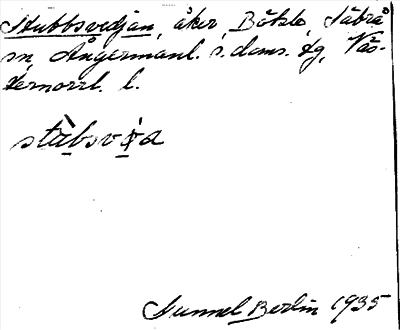 Stubbsvedjan, åker, Bökle, Säbrå
sn, Ångermanl. s. doms. dg, Väs-
ternorrl. l.
stùbsvía
Gunnel Berlin 1935